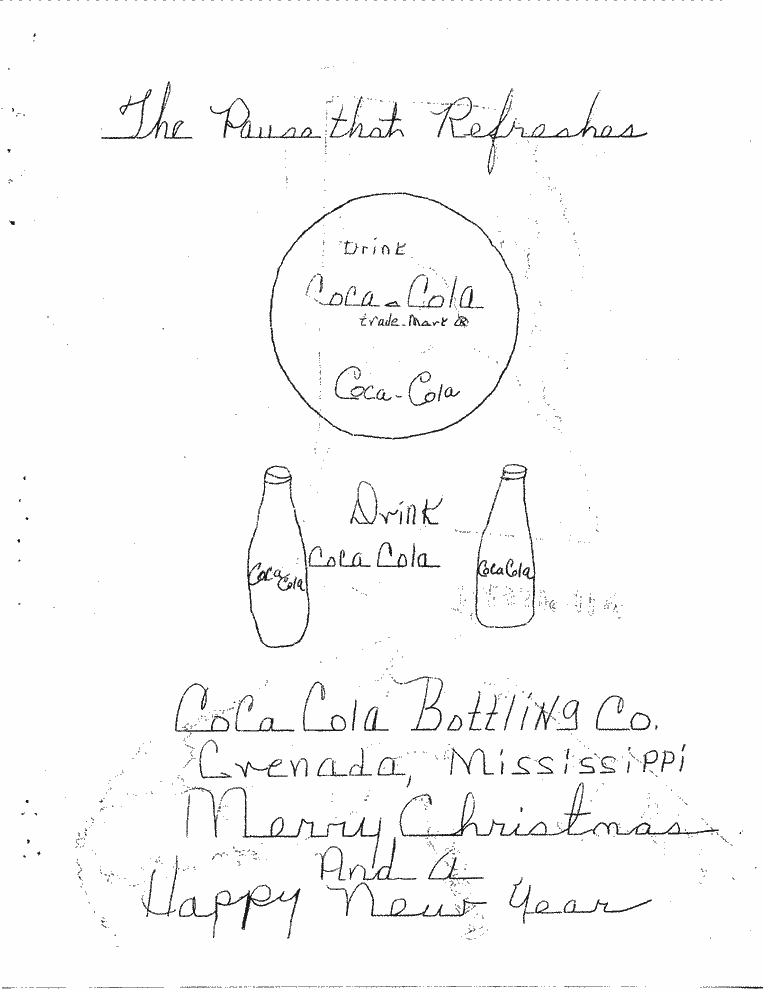 The Pause that Refreshes
Drink
Coca-Cola
trade-mark ®
Coca-Cola
Drink
Coca Cola
Coca Cola
Coca Cola
Coca Cola Bottling Co.
Grenada, Mississippi
Merry Christmas
And a
Happy New Year